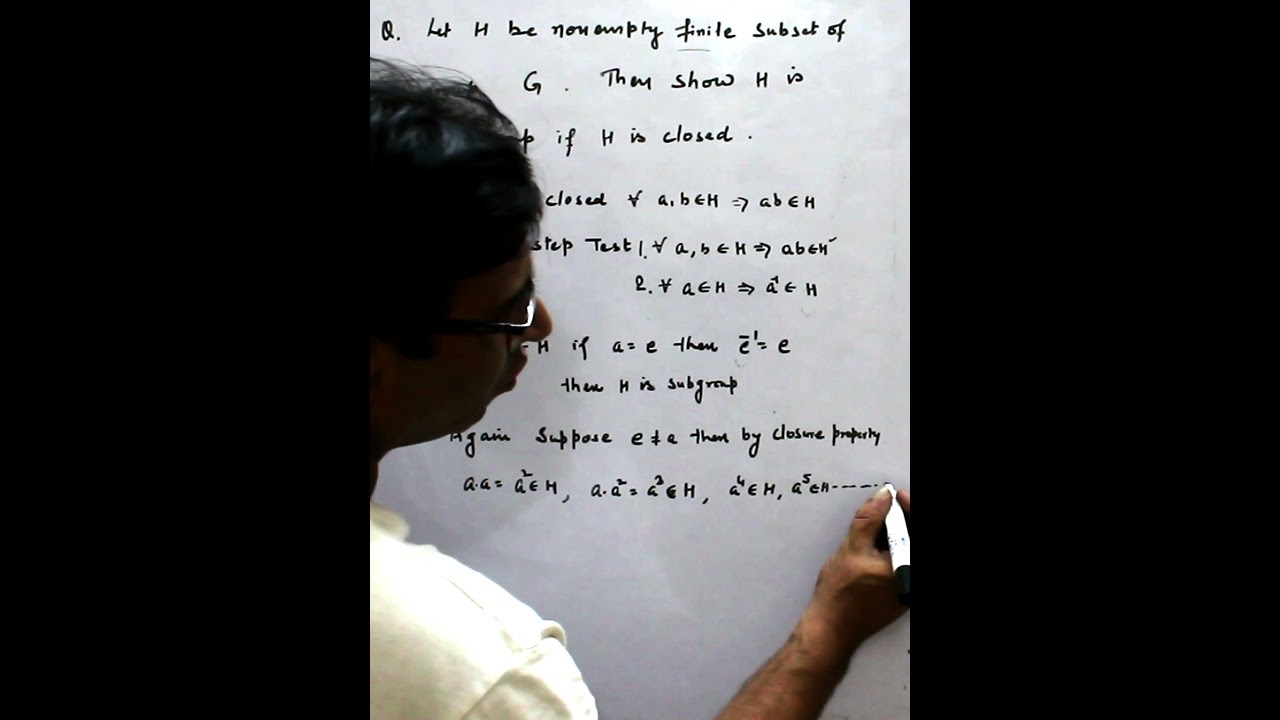 Q. Let H be nonempty finite subset of
G. Then show H is
p if H is closed.
closed ∀ a,b∈H ⇒ ab∈H
step Test 1. ∀ a,b∈H ⇒ ab∈H
2. ∀ a∈H ⇒ a⁻¹∈H
H if a=e then e⁻¹=e
then H is subgroup
Again Suppose e≠a then by closure property
a.a=a²∈H, a.a²=a³∈H, a⁴∈H, a⁵∈H-----